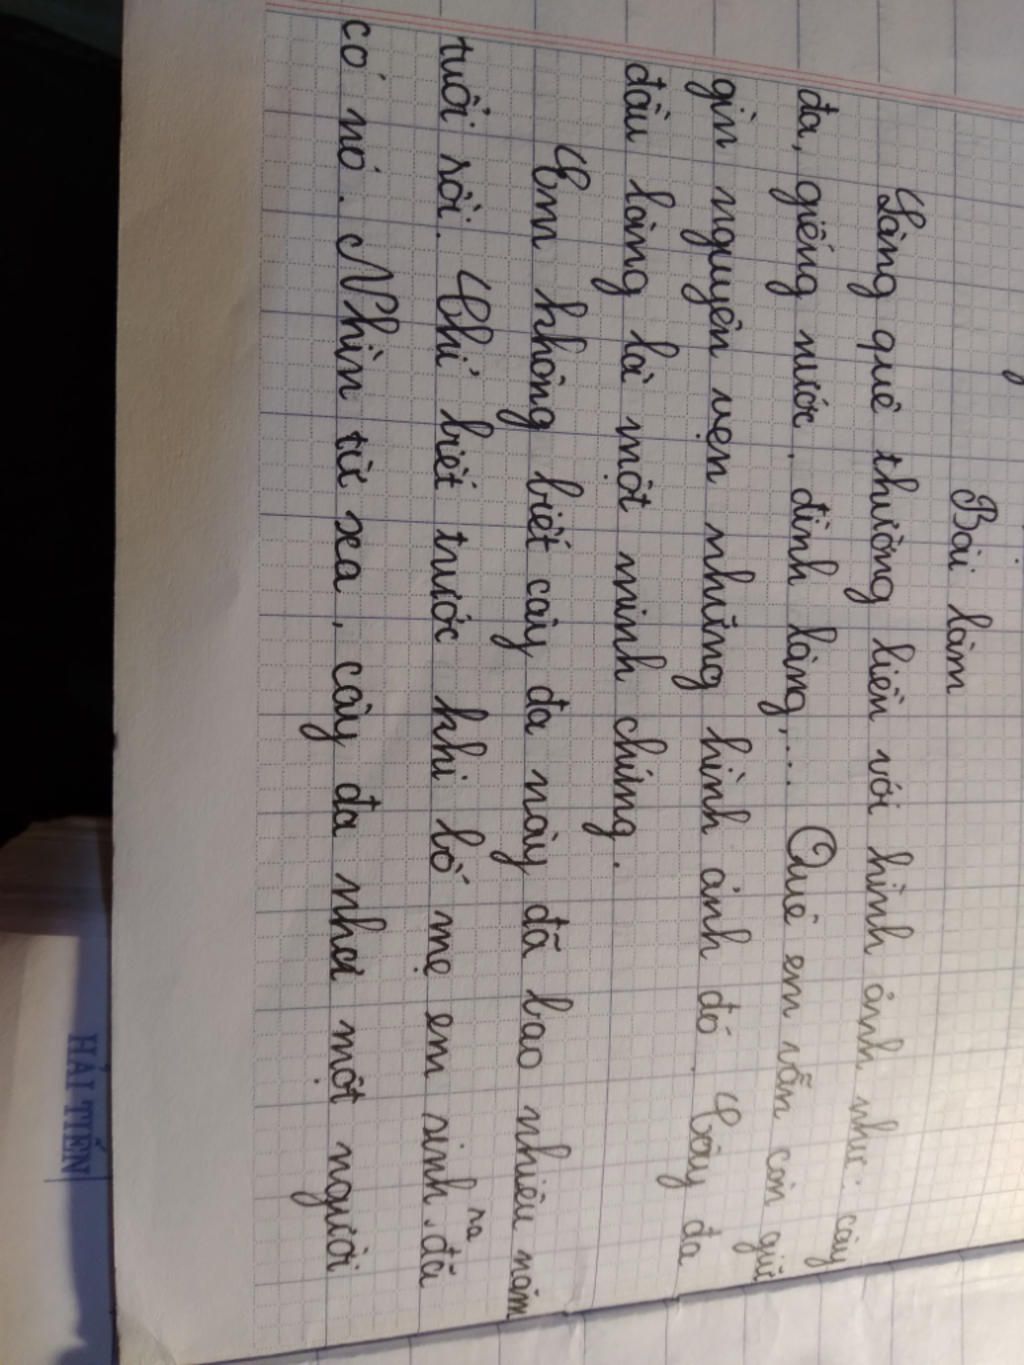 Bài làm
Làng quê thường liền với hình ảnh như: cây
đa, giếng nước, đình làng,... Quê em vẫn còn giữ
gìn nguyên vẹn những hình ảnh đó. Cây đa
đầu làng là một minh chứng.
Em không biết cây đa này đã bao nhiêu năm
tuổi rồi. Chỉ biết trước khi bố mẹ em sinh ra đã
có nó. Nhìn từ xa, cây đa như một người
HẢI TIẾN